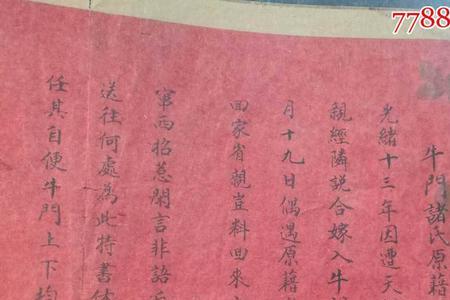 7788
牛門諸氏原籍
光緒十三年因遭天
親經隣説合嫁入牛
月十九日偶遇原藉
回家省親豈料回來
西招惹閑言非語
送往何處為此特書
任其自便牛門上下均